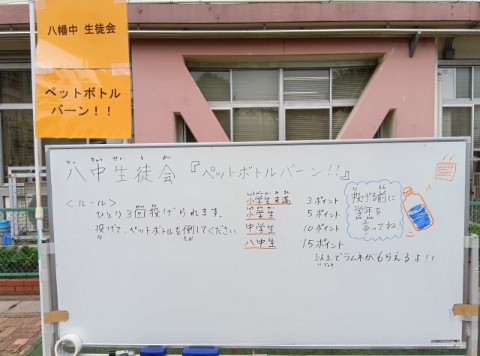 八幡中 生徒会
ペットボトル
バーン！！
八中生徒会 『ペットボトルバーン!!』
はっちゅうせいとかい
＜ルール＞
ひとり3回投げられます。
投げて、ペットボトルを倒してください
な
たお
小学生未満 3ポイント
小学生 5ポイント
中学生 10ポイント
八中生 15ポイント
以上でラムネがもらえるよ!!
いじょう
投げる前に
学年を
言ってね